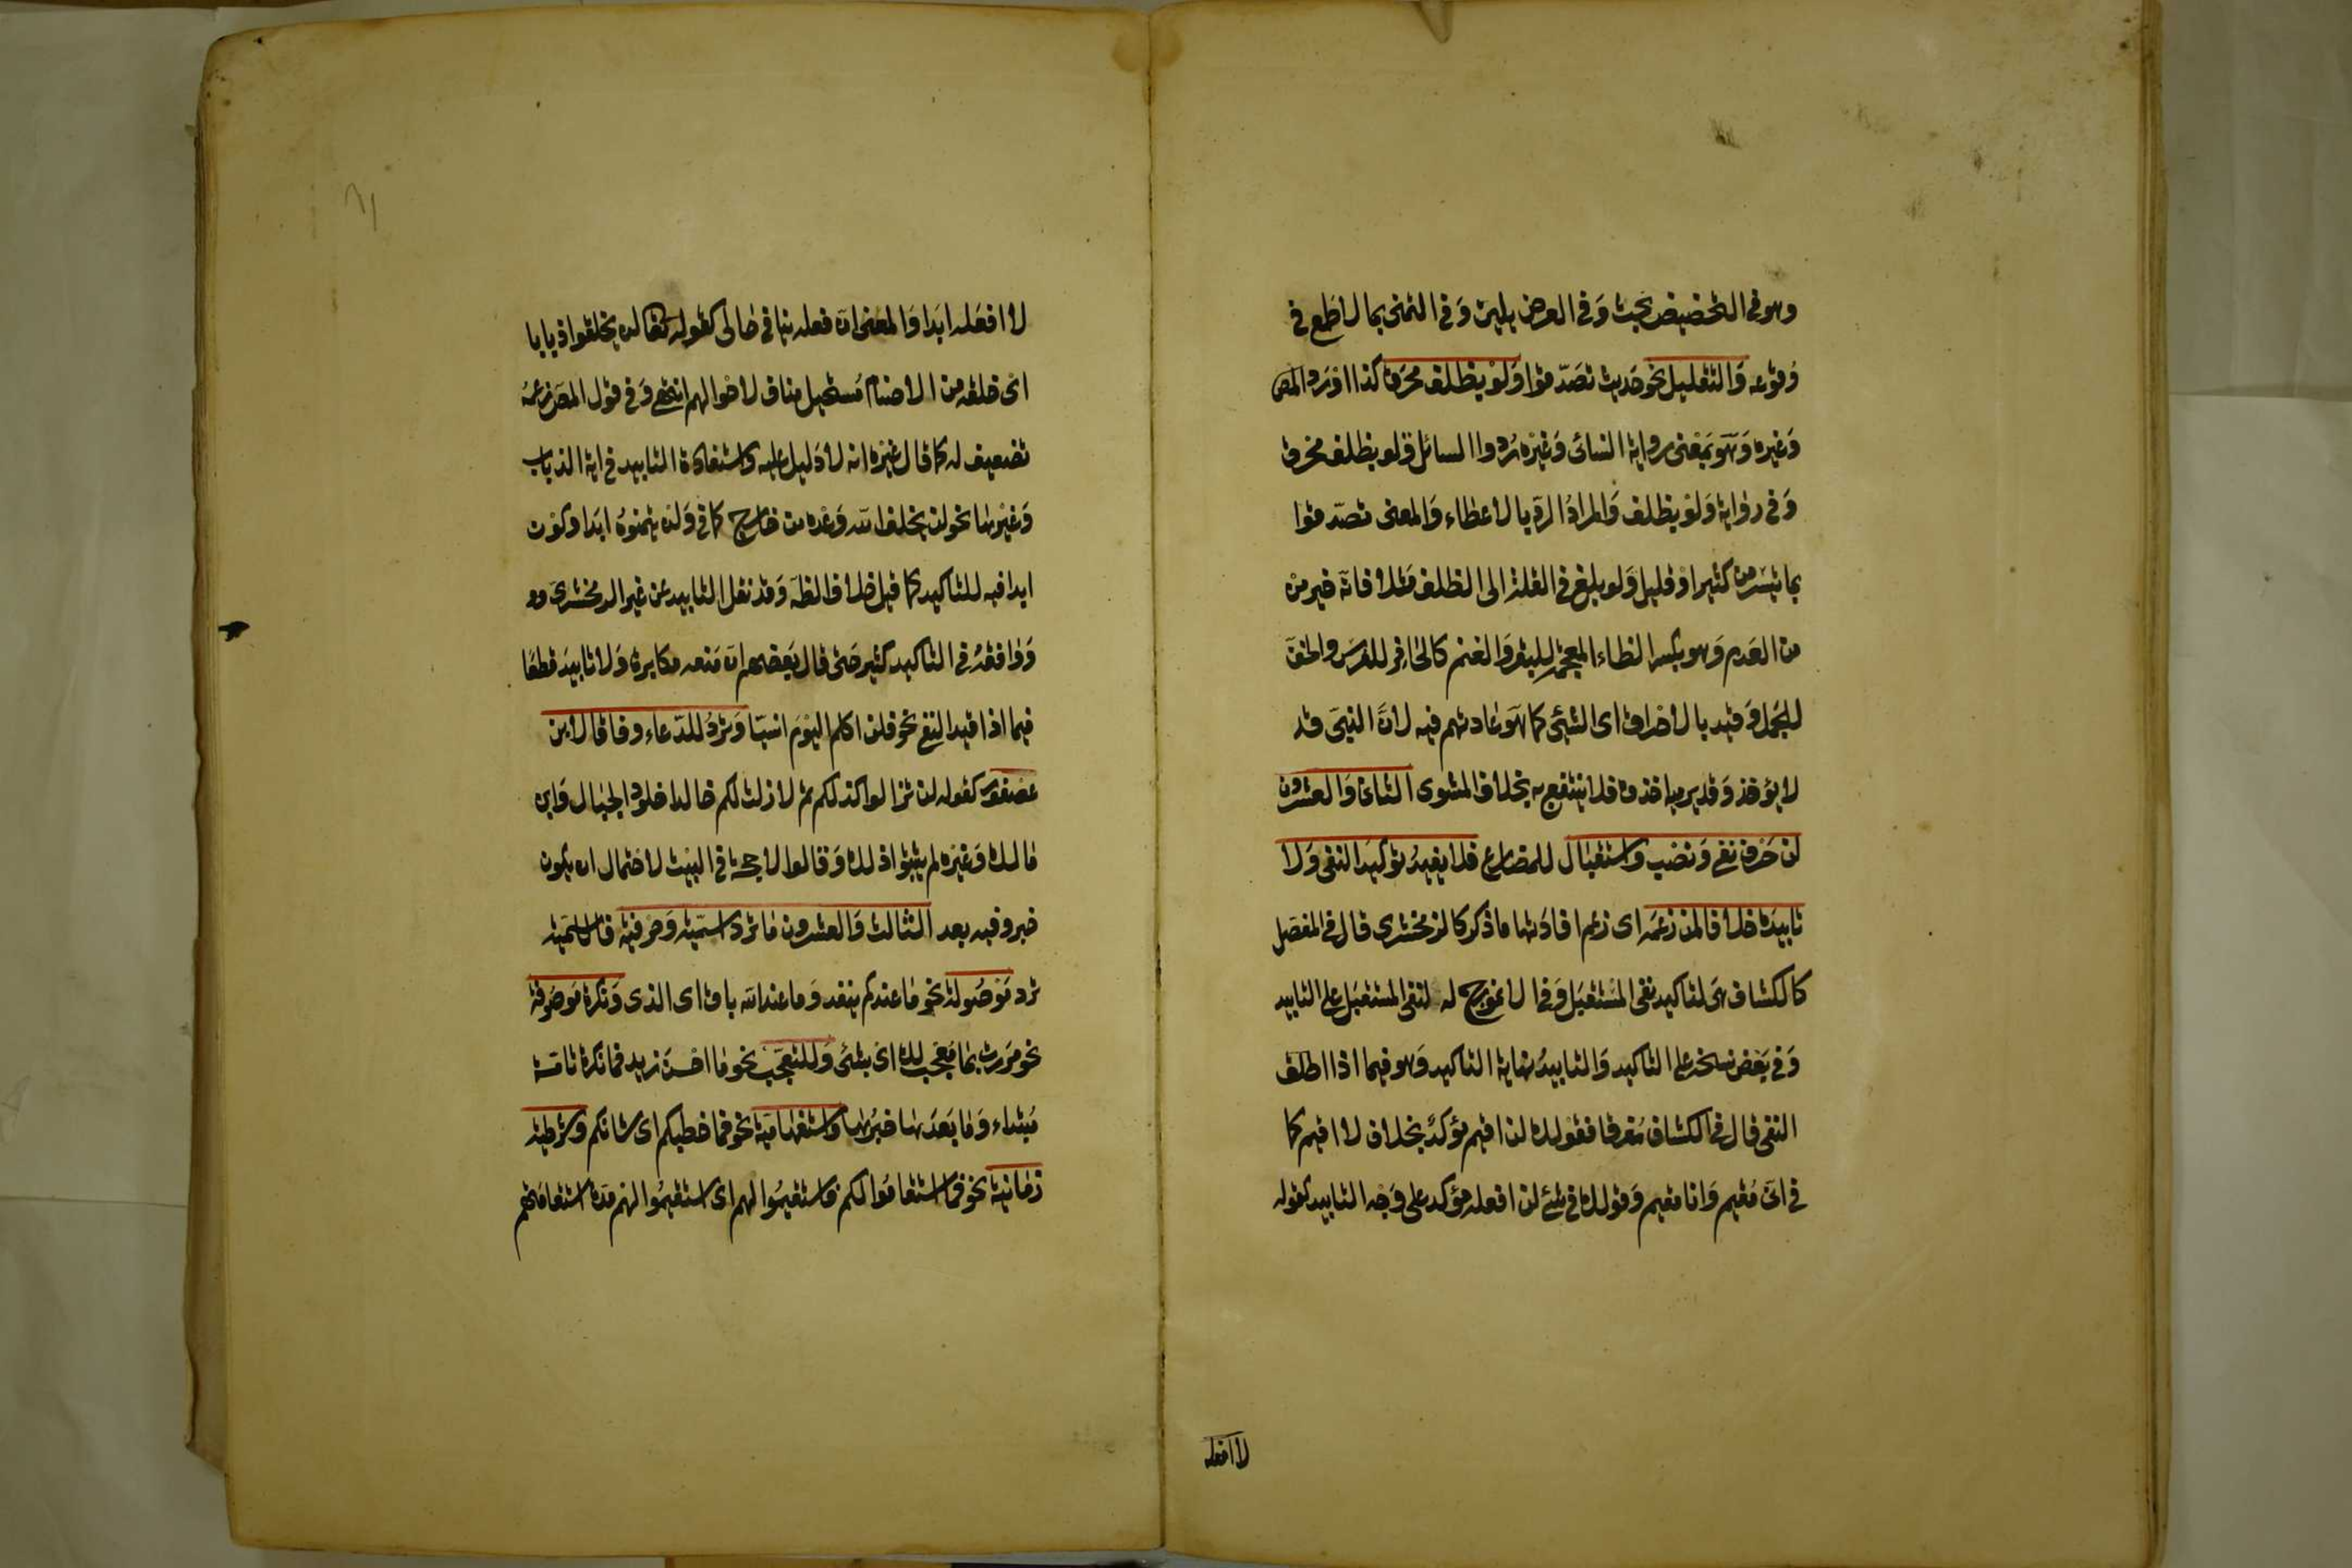 وهو في التحضيض بحث وَفي العرض بلين وَفي التمنى بما لا طمع في
وُقوعه وَالتقليل نحو حَديث تصَدّقوا وَلوْ بظلف محرَق كذا اوْرَده المص
وَغيره وَهوَ بمَعنى رواية النسائ وَغيْره رُدوا السائل وَلو بظلف محرق
وَفي روَاية وَلوْ بظلف وَالمرادُ الردّ بالاعطاء وَالمعنى تصدّقوا
بما تيسَّر من كثير اوْ قليل وَلو بلغ في القلة الى الظلف مَثلا فانه خير من
من العَدم وَهو بكسر الظاء المعجمة للبقر وَالغنم كالحَافِر للفرَس والخف
للجمل وَقيد بالاحراق اى الشيّ كما هوَ عَادتهم فيه لانَّ النيئ قد
لا يؤخذ وَقد يرميه اخذه فلا ينتفع به بخلاف المشوى الثاني وَالعشرون
لن حَرف نفي وَنصْب وَاستقبَال للمضارع فلا يفيدُ توكيدَ النفى وَلا
تابيدَه خلافا لمن زعمَه اى زعم افادَتها ما ذكر كالزمخشرى قال في المفصل
كالكشاف هَى لتاكيد نفى المسْتقبَل وَفى الانموذج له لنفى المستقبَل على التابيد
وَفي بَعض نسخه على التاكيد وَالتابيدُ نهاية التاكيد وَهو فيما اذا اطلق
النفى قال في الكشاف مُفرقا فقوْلك لن اقيم مؤكدٌ بخلاف لا اقيم كما
في انّى مُقيم وَانا مقيم وَقولك في شئ لن افعله مؤكد على وَجْه التابيد كقوله
لا افعله
لا افعَله ابَدا وَالمعنى انّ فعله ينافي حَالى كقوله تعَالى لن يخلقوا ذبابا
اى خلقه من الاصنام مُستحيل مناف لاحْوالهم انتهى وَفي قول المصَ زعمَهُ
تضعيف له كما قال غيْره انه لا دَليل عليه وَاستفادَة التابيد في اية الذباب
وَغيْرهَا نحو لن يخلف الله وَعْده من خارج كما في وَلن يتمنوْهُ ابَدا وَكوْن
ابدا فيه للتاكيد كما قيل خلاف الظاهر وَقد نقل التابيد عَن غير الزمخشرى وو
وَوَافقهُ في التاكيد كثير حَتى قال بَعضهم انّ مَنعه مكابرة وَلا تابيدَ قطعَا
فيما اذا قيد النفي نحو فلن اكلم اليوْم انسيّا وَترْدُ للدّعاء وفاقا لابن
عصْفوْر كقوله لن تزالوا كذلكم ثم لا زلت لكم خالدا خلوْد الجبَال وَابن
مَالك وَغيرَه لم يثبتوُا ذلك وَقالوا لا حجة في البيْت لاحتمال ان يكون
خبر وفيه بعد الثالث وَالعشرون مَا ترْد اسميّة وَحرْفيّة فالاسْميّة
ترْد مَوْصُولة نحو مَا عندكم ينفد وَما عند الله باق اى الذى وَنكرةً مَوصُوفة
نحو مرَرت بمَا مُعْجب لك اى بشئ وَللتعجّب نحو مَا احْسَن زيد فما نكرة تامّة
مُبتداء وَمَا بَعدَهَا خبرُهَا وَاستفهَاميّة نحو فمَا خطبكم اى شانكم وَشرطيّة
زمَانية نحو فمَا استقامُوا لكم فاستقيمُوا لهم اى استقيمُوا لهم مدّة استقامَتهم